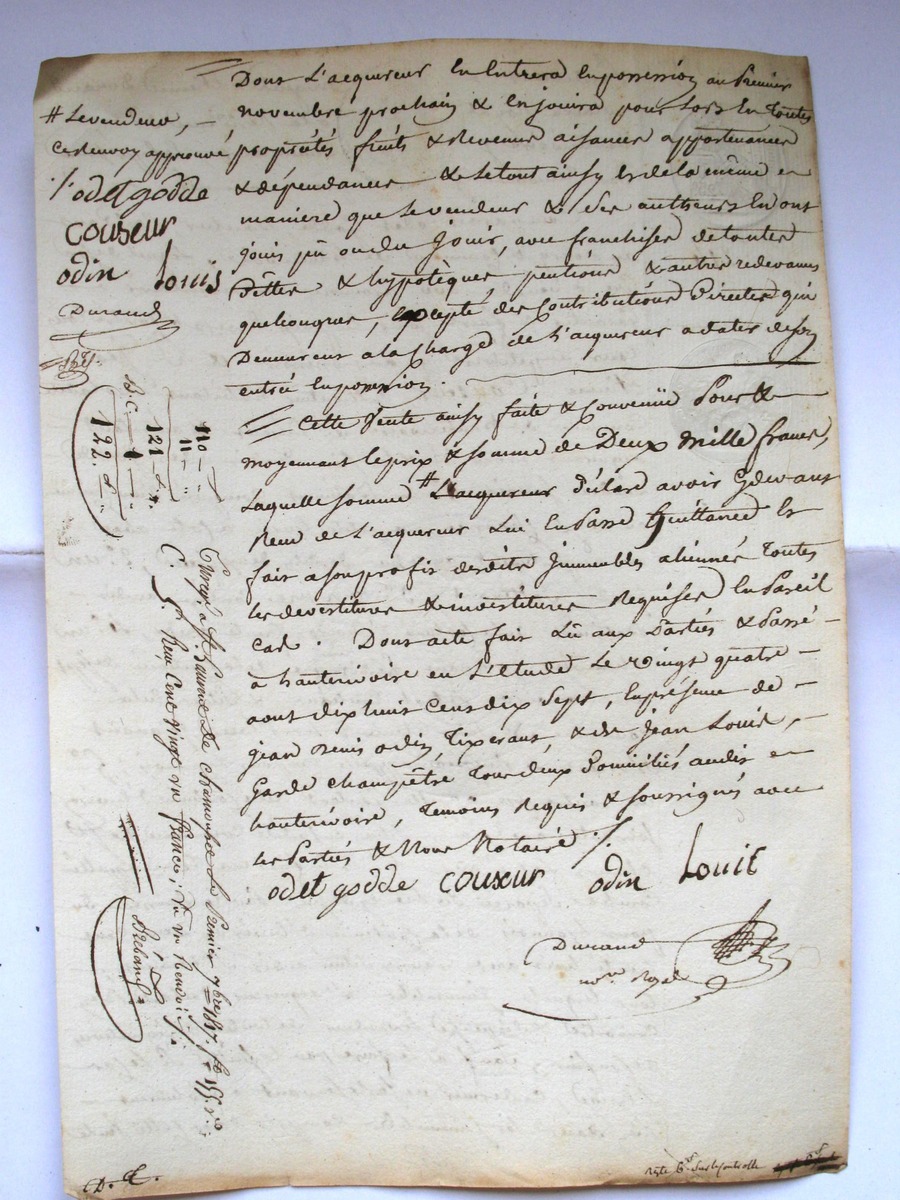 Dont L'acquereur En Entrera En possession au Premier
novembre prochain & En jouira pour Lors En Toutes
propriétés fruits & Revenus aisances appartenances
& dépendances & Le tout ainsy & de la même
maniere que Le vendeur & Ses autheurs En ont
joui pû ou du jouir, avec franchises de toutes
Dettes & hypotèques pentions & autres redevances
quelconques, Excepté des Contributions Directes qui
Demeurent a la Charge de L'acquereur a dater de son
entrée En possession.
Cette Vente ainsy faite & Convenüe Pour &
moyennant Le prix & Somme de Deux mille francs,
Laquelle somme # L'acquereur Déclare avoir Cy devant
Reçu de L'acquereur Lui En Passe Quittance Et
fait a son profit desdits Immeubles aliennés Toutes
Les devestitures & investitures Requises En Pareil
Cas. Dont acte fait Lû aux Parties & Passé
à hauterivoire en L'étude Le vingt quatre
aout dix huit Cent dix Sept, En présence de
jean Denis odin, Tixerant, & de jean Louis,
Garde champêtre Tous deux Domiciliés audit
hauterivoire, Temoins Requis & soussignés avec
Les Parties & Nous Notaire ./.
odet godde couseur odin Louis
Durand
no.re Royal
# Le vendeur,
Ce Renvoy approuvé
./. odet godde
couseur
odin Louis
Durand
110
11
121
B.C. 1
122.
Enreg. a St. Laurent De chamousset Le Premier 7bre 1817. f.o 155. r.o
C. 5. Reçu Cent vingt un francs; Du un Renvoi
D. L.